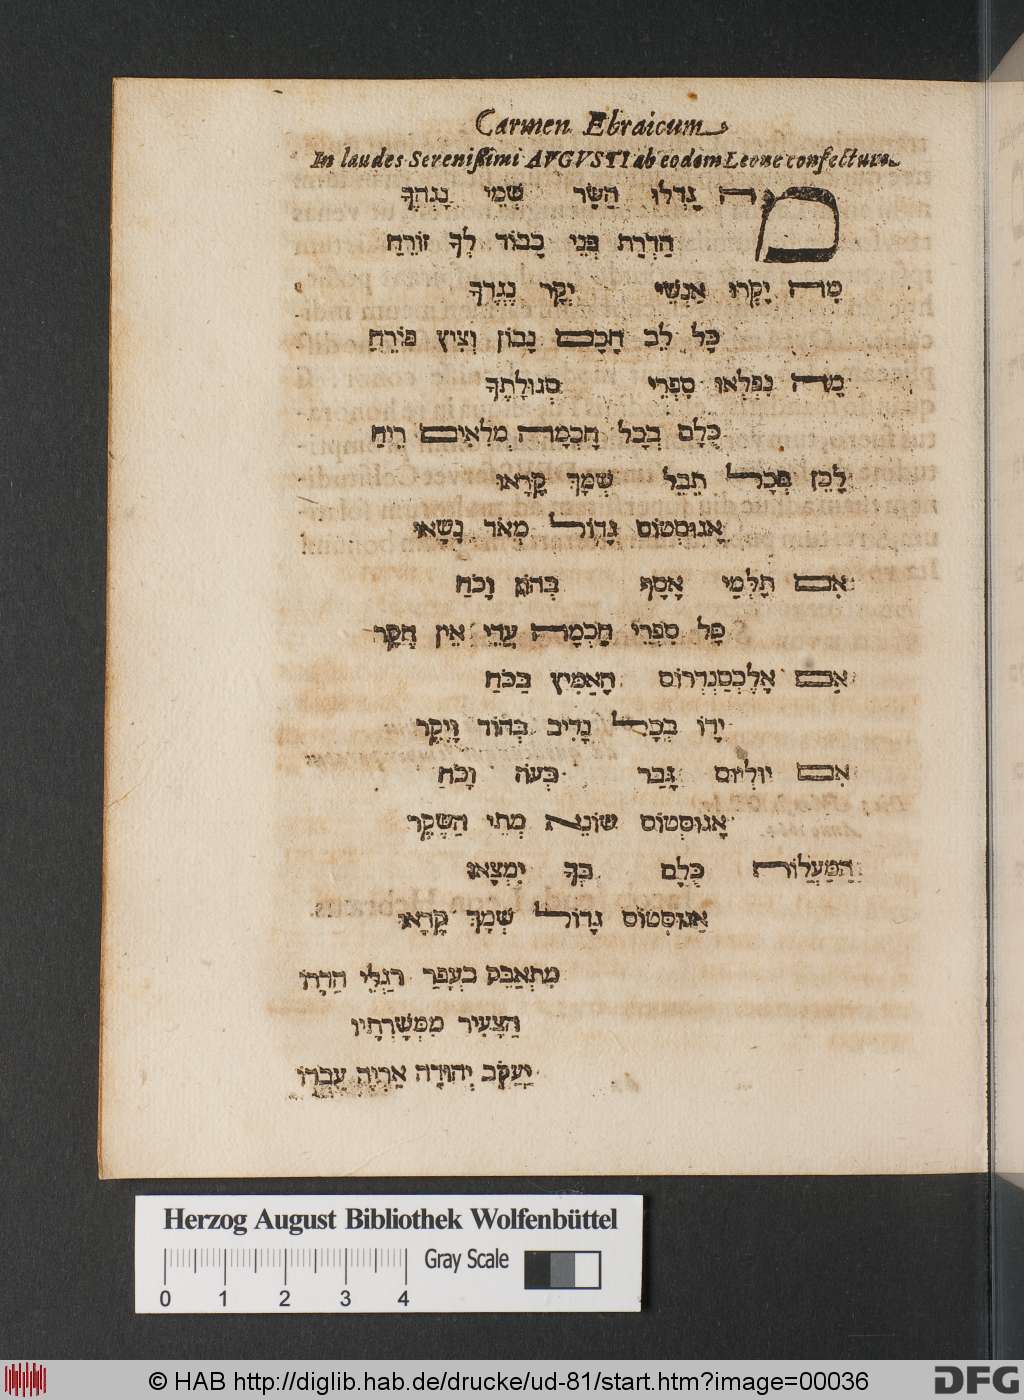 Carmen Ebraicum
In laudes Serenissimi AVGVSTI ab eodem Leone confectum.
מָה גָּדְלוּ הַשָּׂר שְׁמֵי נָגְהֶךָ
הַדְרַת פְּנֵי כָבוֹד לְךָ זוֹרֵחַ
מָה יָקְרוּ אַנְשֵׁי יְקָר נֶגְדֶּךָ
כָּל לֵב חָכָם נָבוֹן וְצִיץ פּוֹרֵחַ
מָה נִפְלְאוּ סִפְרֵי סְגוּלָּתֶךָ
כֻּלָּם בְּכָל חָכְמָה מְלֵאִים רֵיחַ
לָכֵן בְּכָל תֵּבֵל שְׁמָךְ קָרָאוּ
אֲגוּסְטוֹס גָּדוֹל מְאֹד נָשָׂאוּ
אִם תַּלְמַי אָסַף בְּהוֹן וָכֹחַ
כָּל סִפְרֵי חָכְמָה עֲדֵי אֵין חֵקֶר
אִם אָלֶכְסַנְדְרוֹס הָאַמִּיץ בַּכֹּחַ
יָדוֹ בְּכָל נָדִיב בְּהוֹד וִיקָר
אִם יוּלְיוּס גָּבַר בְּעֹז וָכֹחַ
אֲגוּסְטוֹס שׂוֹנֵא מְתֵי הַשֶּׁקֶר
הַמַּעֲלוֹת כֻּלָּם בְּךָ יִמְצָאוּ
אֲגוּסְטוֹס גָּדוֹל שְׁמָךְ קָרָאוּ
מִתְאַבֵּק בַּעֲפַר רַגְלֵי הַדָרוֹ
הַצָּעִיר מִמְּשָׁרְתָיו
יַעֲקֹב יְהוּדָה אַרְיֵה עַבְדּוֹ
Herzog August Bibliothek Wolfenbüttel
Gray Scale
0 1 2 3 4
© HAB http://diglib.hab.de/drucke/ud-81/start.htm?image=00036
DFG